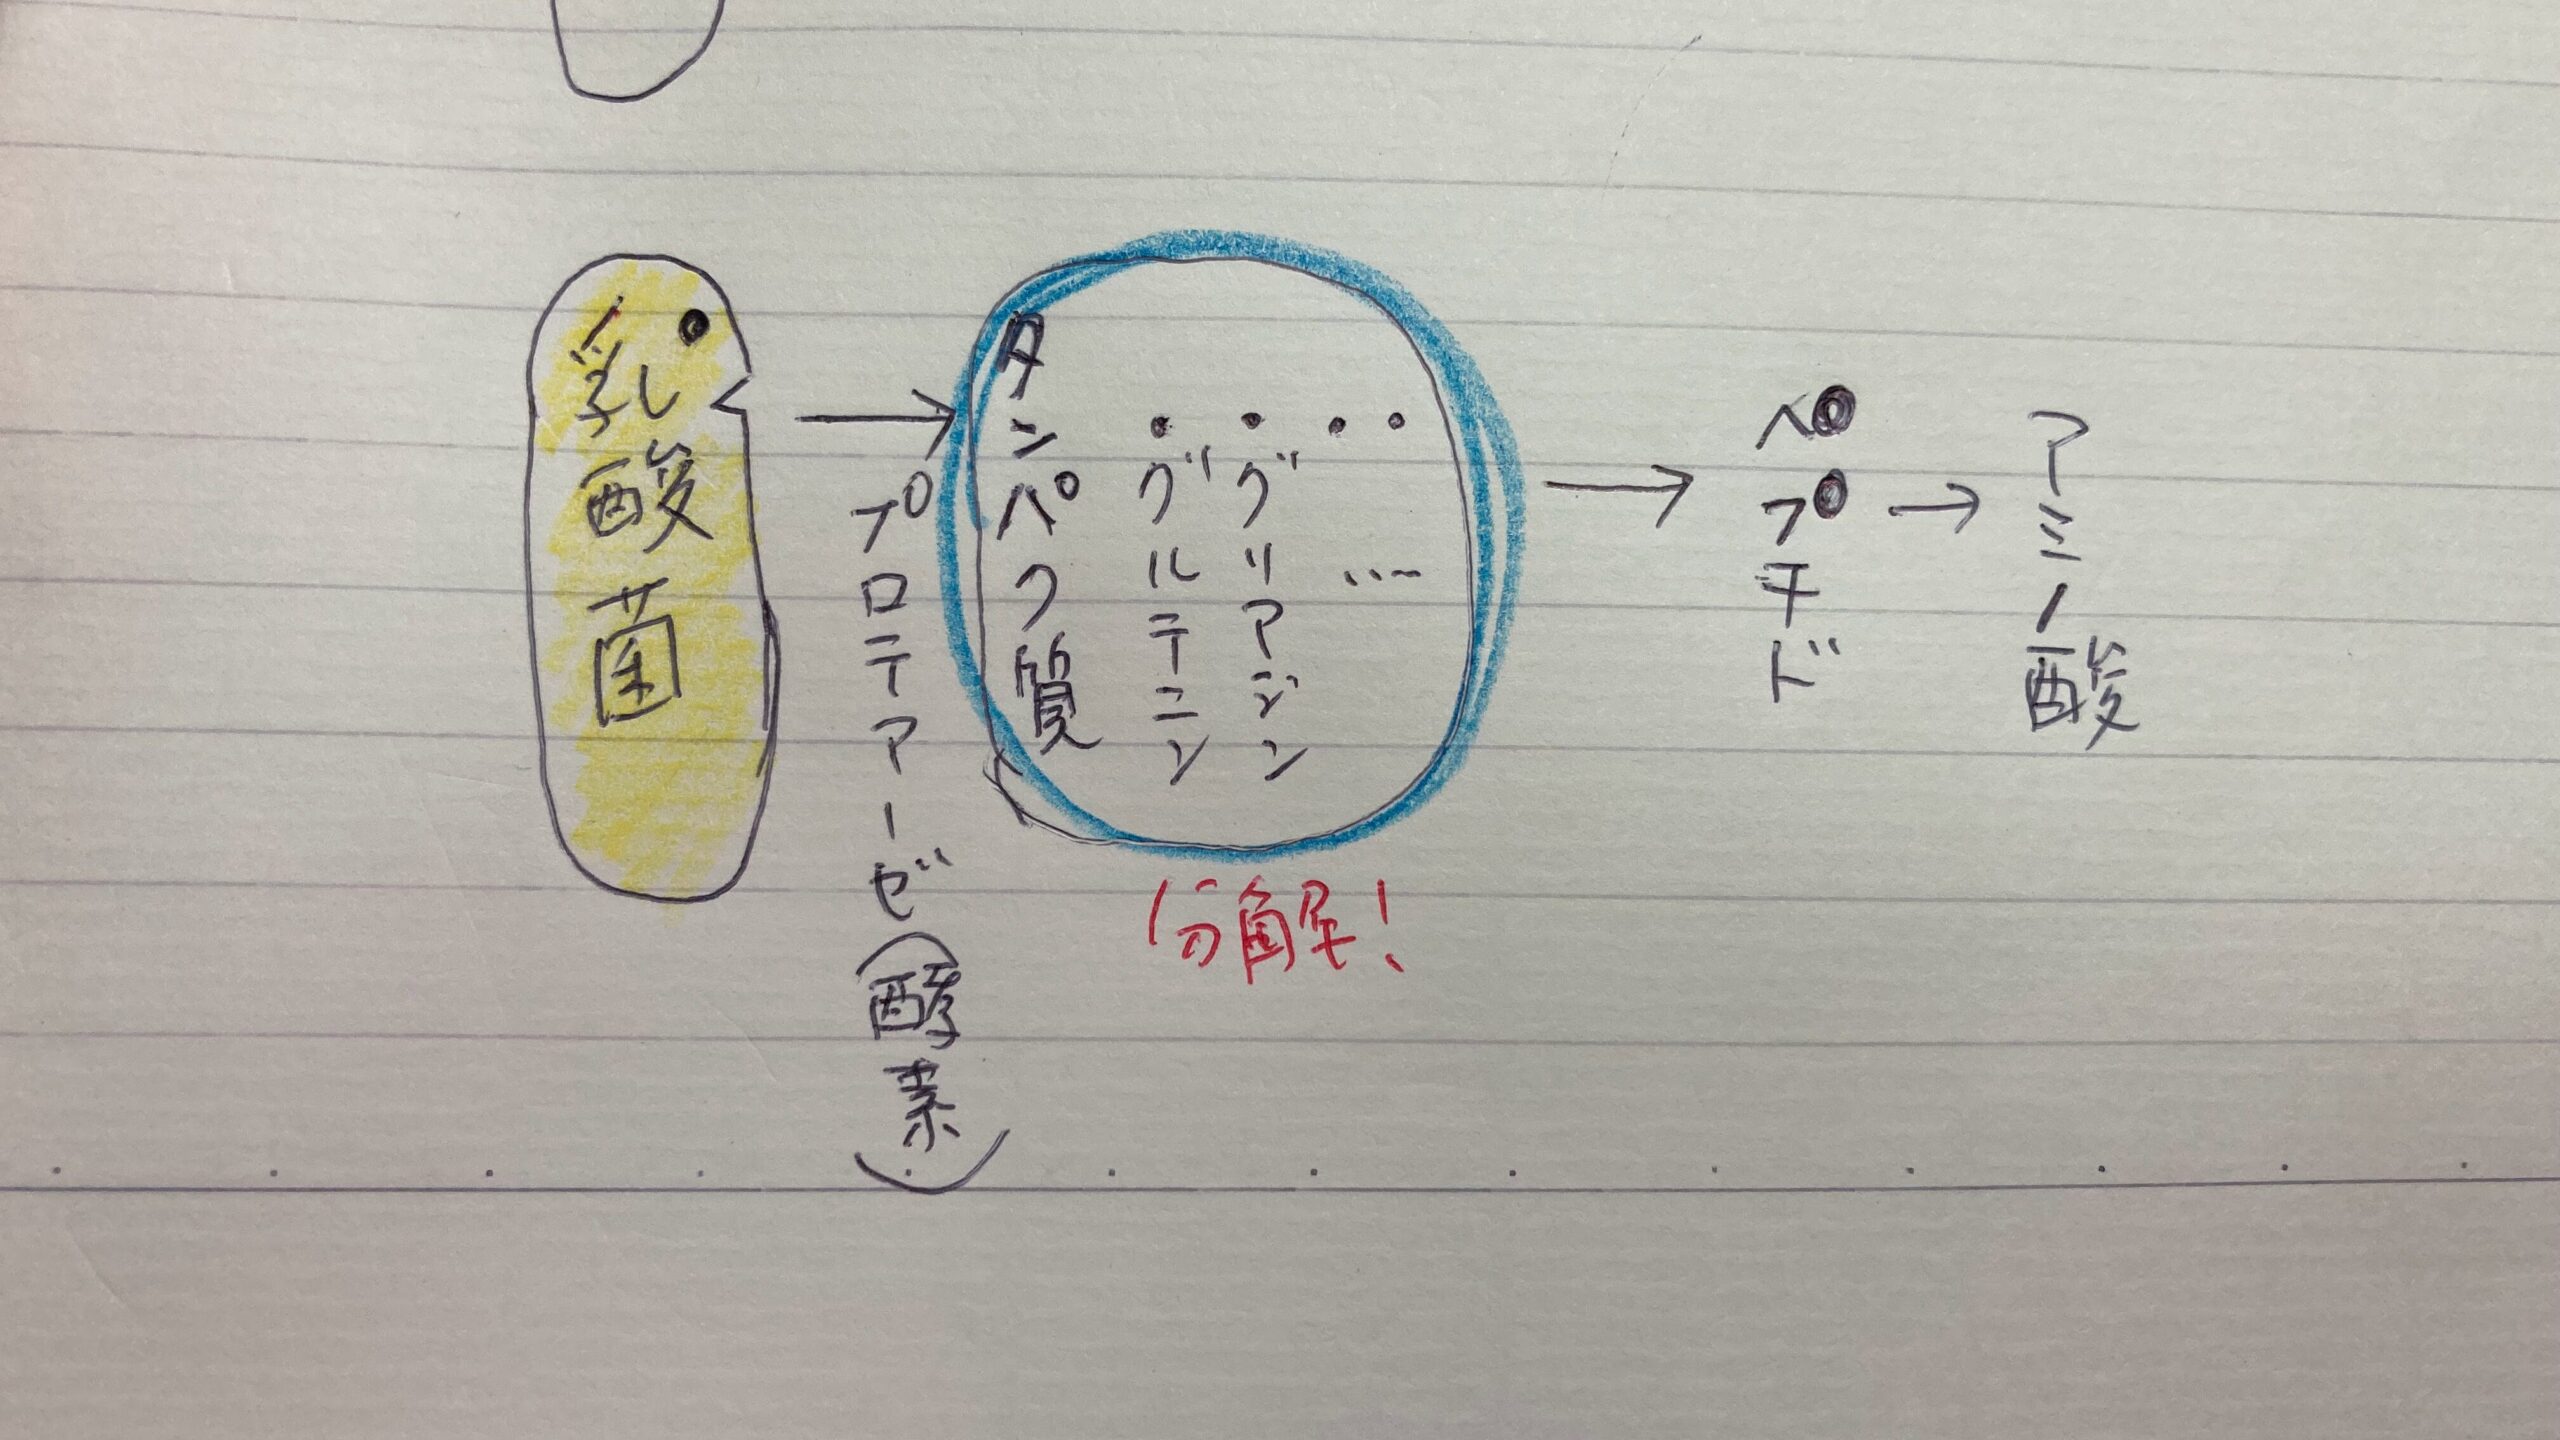 乳酸菌
→
プロテアーゼ(酵素)
タンパク質
・グルテニン
・グリアジン
・・…
分解!
→
ペプチド
→
アミノ酸